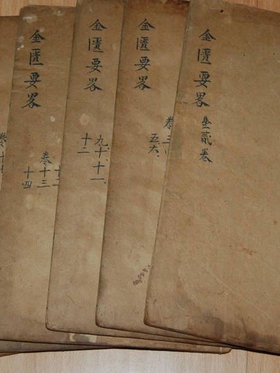 金匱要畧
貳卷
金匱要畧
卷三
五六
金匱要畧
九十十一
十二
金匱要畧
十二
卷十三
十四